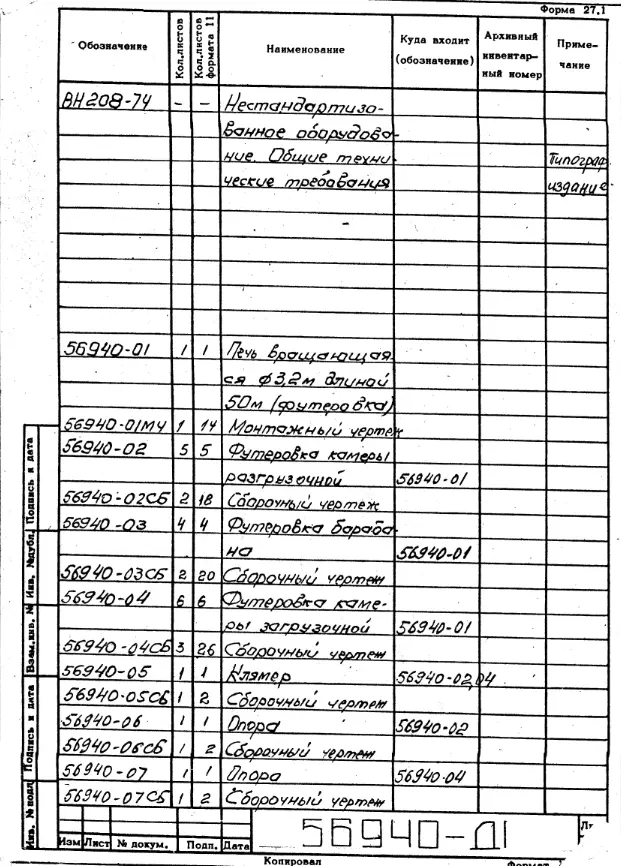 Форма 27.1
Обозначение Кол.листов Кол.листов формата 11 Наименование Куда входит (обозначение) Архивный инвентар-ный номер Приме-чание
ВН208-74 – – Нестандартизо-
ванное оборудова-
ние. Общие техни- Типограф.
ческие требования издание
56940-01 1 1 Печь вращающая
ся ф3,2м длиной
50м (футеровка)
56940-01МЧ 1 14 Монтажный чертеж
56940-02 5 5 Футеровка камеры
разгрузочной 56940-01
56940-02СБ 2 18 Сборочный чертеж
56940-03 4 4 Футеровка бараба-
на 56940-01
56940-03СБ 2 20 Сборочный чертеж
56940-04 6 6 Футеровка каме-
ры загрузочной 56940-01
56940-04СБ 3 26 Сборочный чертеж
56940-05 1 1 Клямер 56940-02,04
56940-05СБ 1 2 Сборочный чертеж
56940-06 1 1 Опора 56940-02
56940-06СБ 1 2 Сборочный чертеж
56940-07 1 1 Опора 56940-04
56940-07СБ 1 2 Сборочный чертеж
Подпись и дата
Инв. №дубл.
Взам.инв. №
Подпись и дата
Инв. №подл
Изм Лист № докум. Подп. Дата
56940-Д1
Копировал
Формат